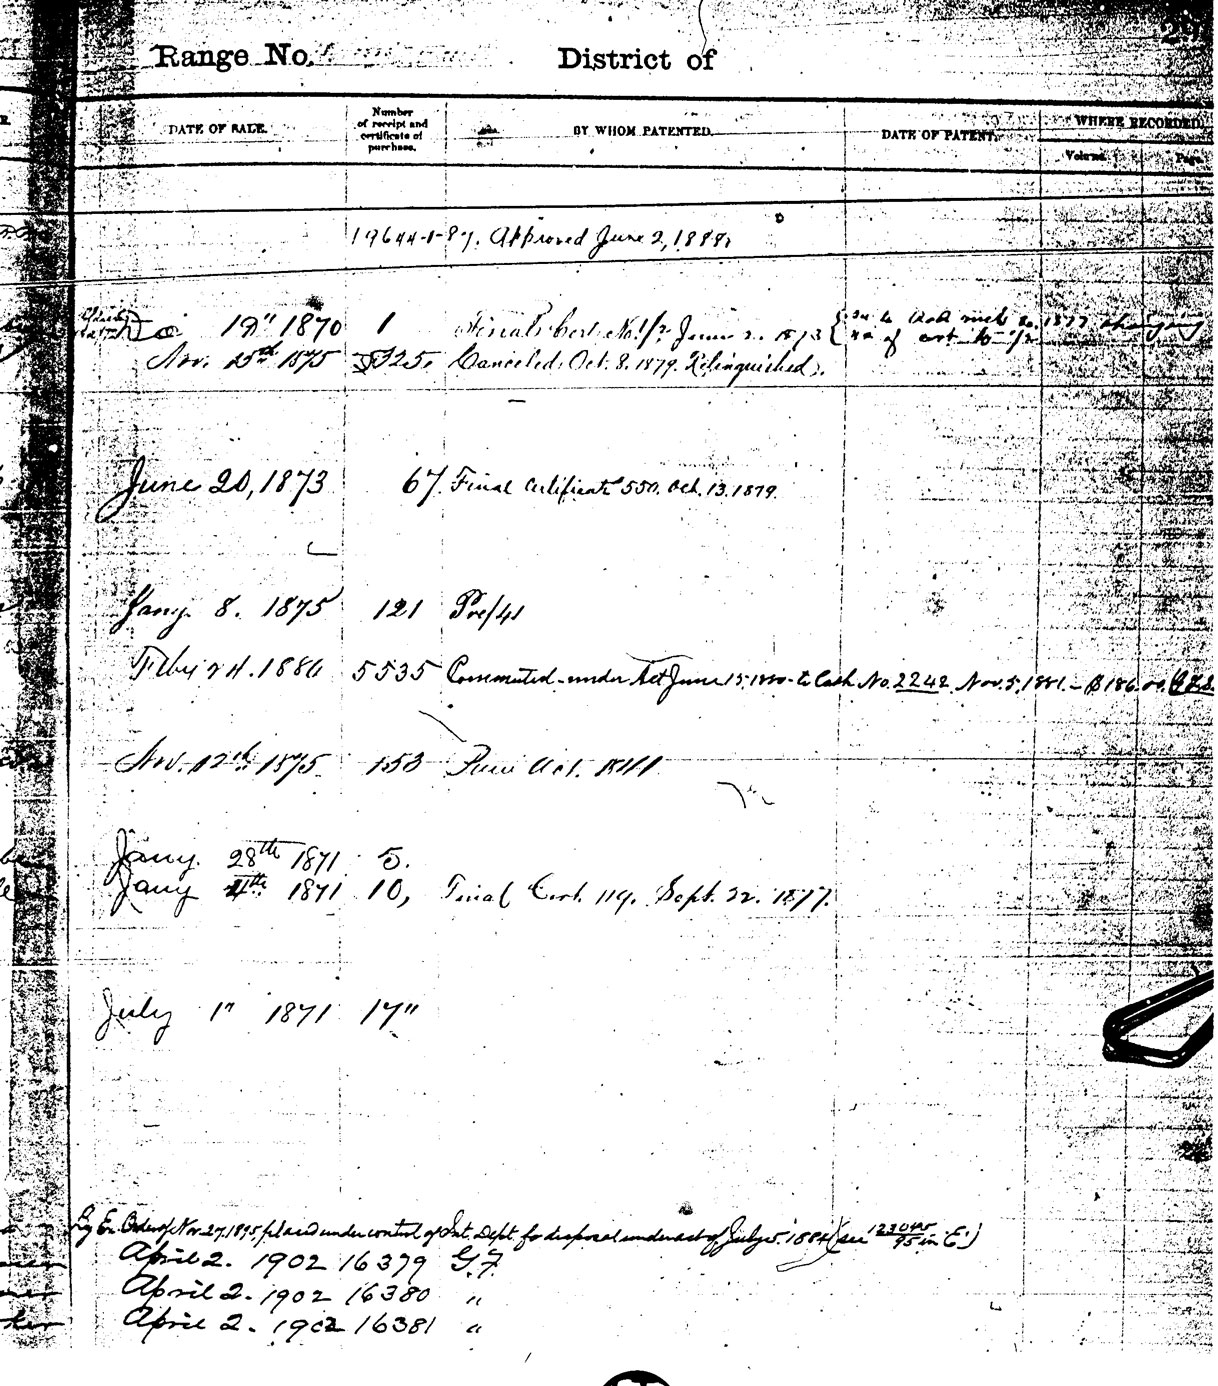 Range No. District of
DATE OF SALE. Number of receipt and certificate of purchase. BY WHOM PATENTED. DATE OF PATENT. WHERE RECORDED.
Volume. Page.
19644-1-87. Approved June 2, 1888.
19" 1870 1 Final Cert. No. 1/2 June 2. 1873
Nov. 15th 1875 325. Canceled. Oct. 8. 1879. Relinquished.
June 20, 1873 67. Final Certificate 550. Oct. 13. 1879.
Jany. 8. 1875 121 Pre/41
Feby 24. 1880 5535 Commuted under Act June 15, 1880 to Cash No. 2242 Nov. 5, 1881. $186.00.
Nov. 12th 1875 153 Act. 1841
Jany. 28th 1871 5.
Jany 4th 1871 10, Final Cert. 119. Sept. 22. 1877.
July 1" 1871 17"
By Ex. Order of Nov. 27, 1895, placed under control of Int. Dept. for disposal under act of July 5, 1884 (see 123045/95 in "E")
April 2. 1902 16379 G.F.
April 2. 1902 16380 "
April 2. 1902 16381 "